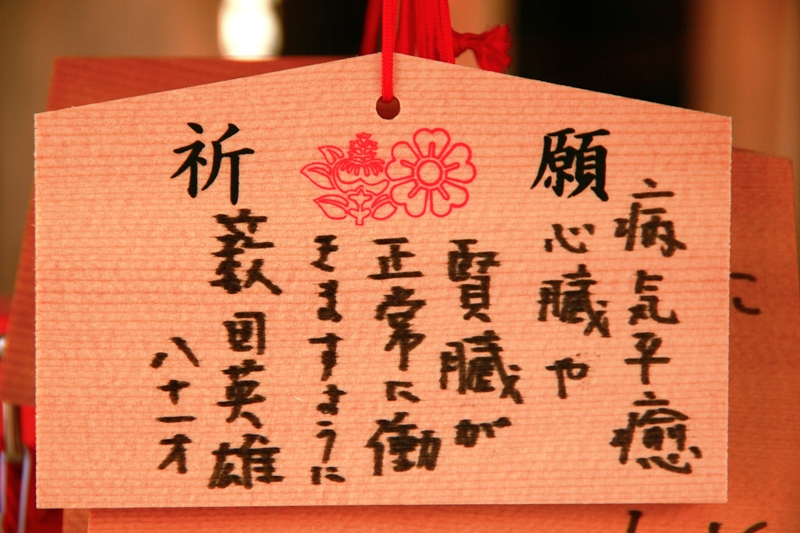 祈願
病気平癒
心臓や
賢臓が
正常に働
きますように
薮田英雄
八十一才